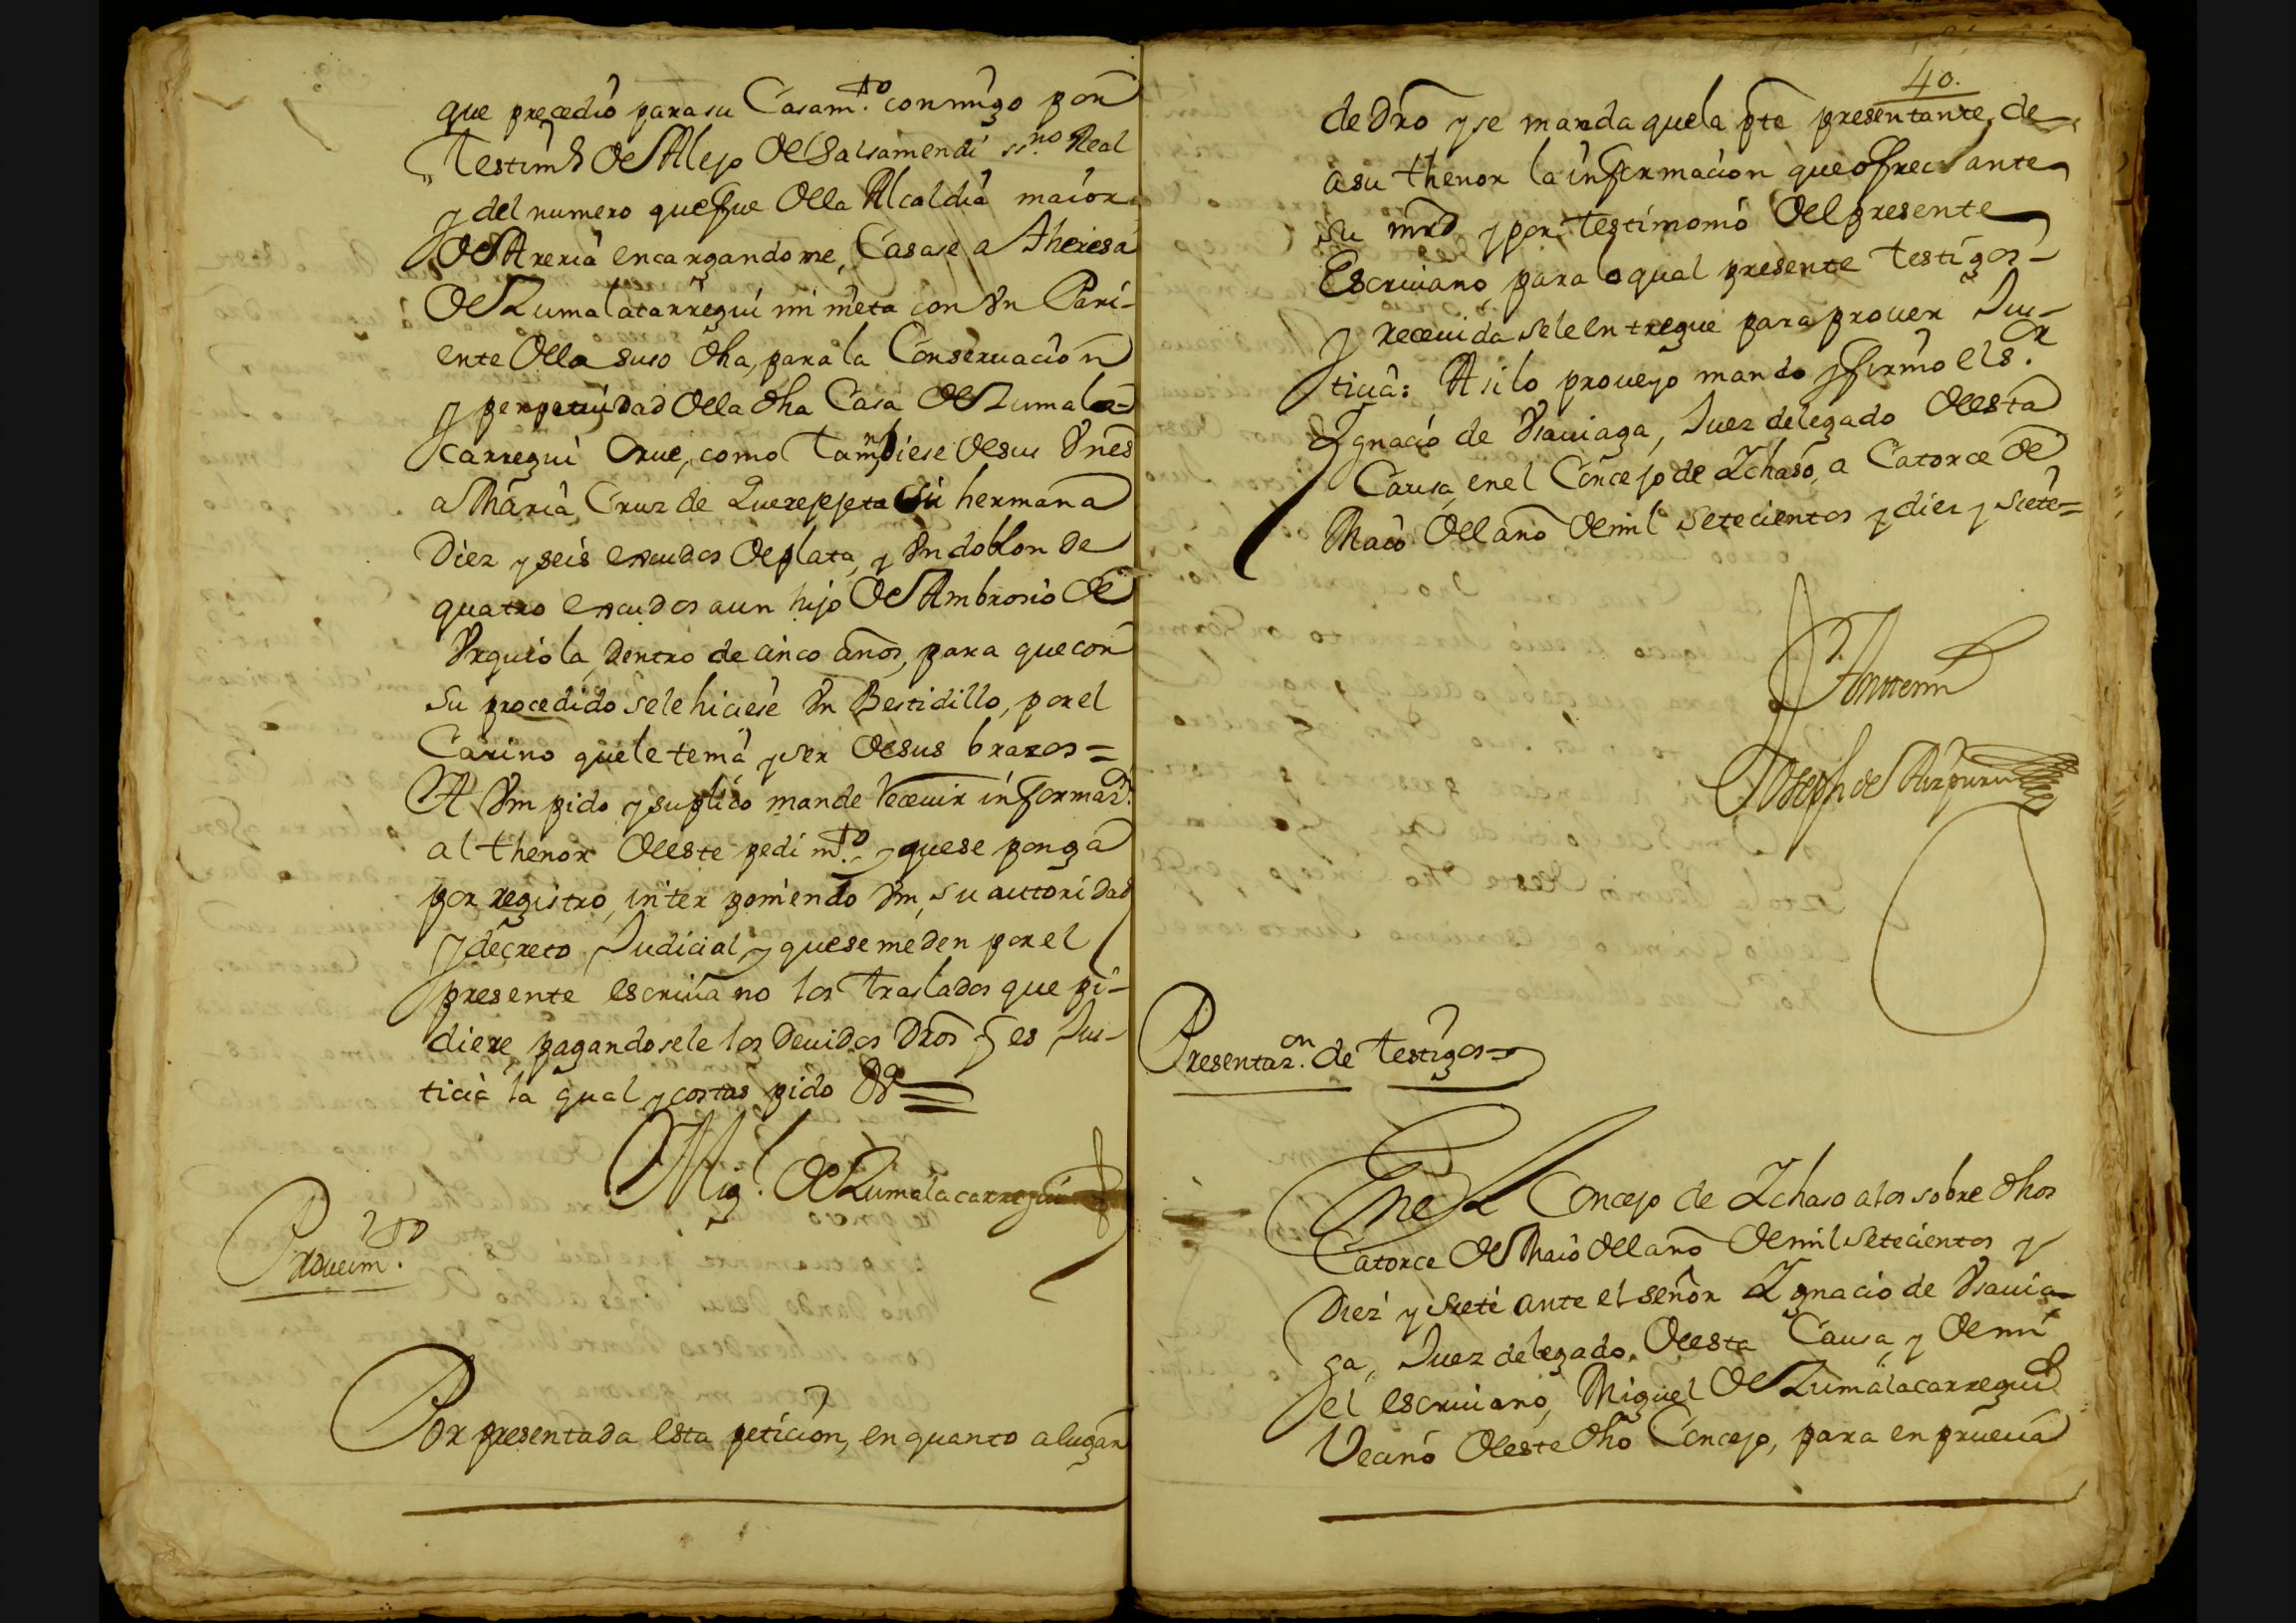 que precedio para su Casam.to conmigo por
Testimo de Alejo de Salsamendi ss.no Real
y del numero que fue de la Alcaldia maior
de Areria encargandome, Casase a Theresa
de Zumalacarregui mi nieta con Vn Pari-
ente de la suso dha, para la Conseruacion
y perpetuidad de la dha Casa de Zumala-
carregui que, como tambien diese de sus Vnes
a Maria Cruz de Querejeta su hermana
Diez y seis escudos de plata, y Vn doblon de
quatro escudos a un hijo de Ambrosio de
Vrquiola, dentro de cinco años, para que con
su procedido se le hiciese Vn Bestidillo, por el
Carino que le tenia y ser de sus brazos =
A Vm pido y suplico mande Receuir informaz.on
al thenor de este pedim.to y que se ponga
por registro, interponiendo Vm, su autoridad
y decreto Judicial y que se me den por el
presente escriuano los traslados que pi-
diere, pagandosele los Deuidos Dros q es Jus-
ticia la qual y costas pido V.a =
Mig.l de Zumalacarregui
Proueim.to
Por presentada esta peticion, en quanto a lugar
40.
de Dro y se manda que la pte presentante, de
a su thenor la informacion que ofrece ante
su mrd y por testimonio del presente
Escriuano, para lo qual presente testigos -
y receuida se le entregue para prouer Jus-
ticia: Asi lo proueyo mando y firmo el s.or
Ignacio de Vsauiaga, Juez delegado de esta
Causa, en el Concejo de Ichaso, a Catorce de
Maio del año de mil setecientos y diez y siete =
Antemi
Joseph de Aizpuru
Presentaz.on de testigos =
En el Concejo de Ichaso a los sobre dhos
Catorce de Maio del año de mil setecientos y
Diez y siete ante el señor Ignacio de Vsauia-
ga, Juez delegado de esta Causa, y de mi
el escriuano, Miguel de Zumalacarregui
Vecino de este dho Concejo, para en prueua